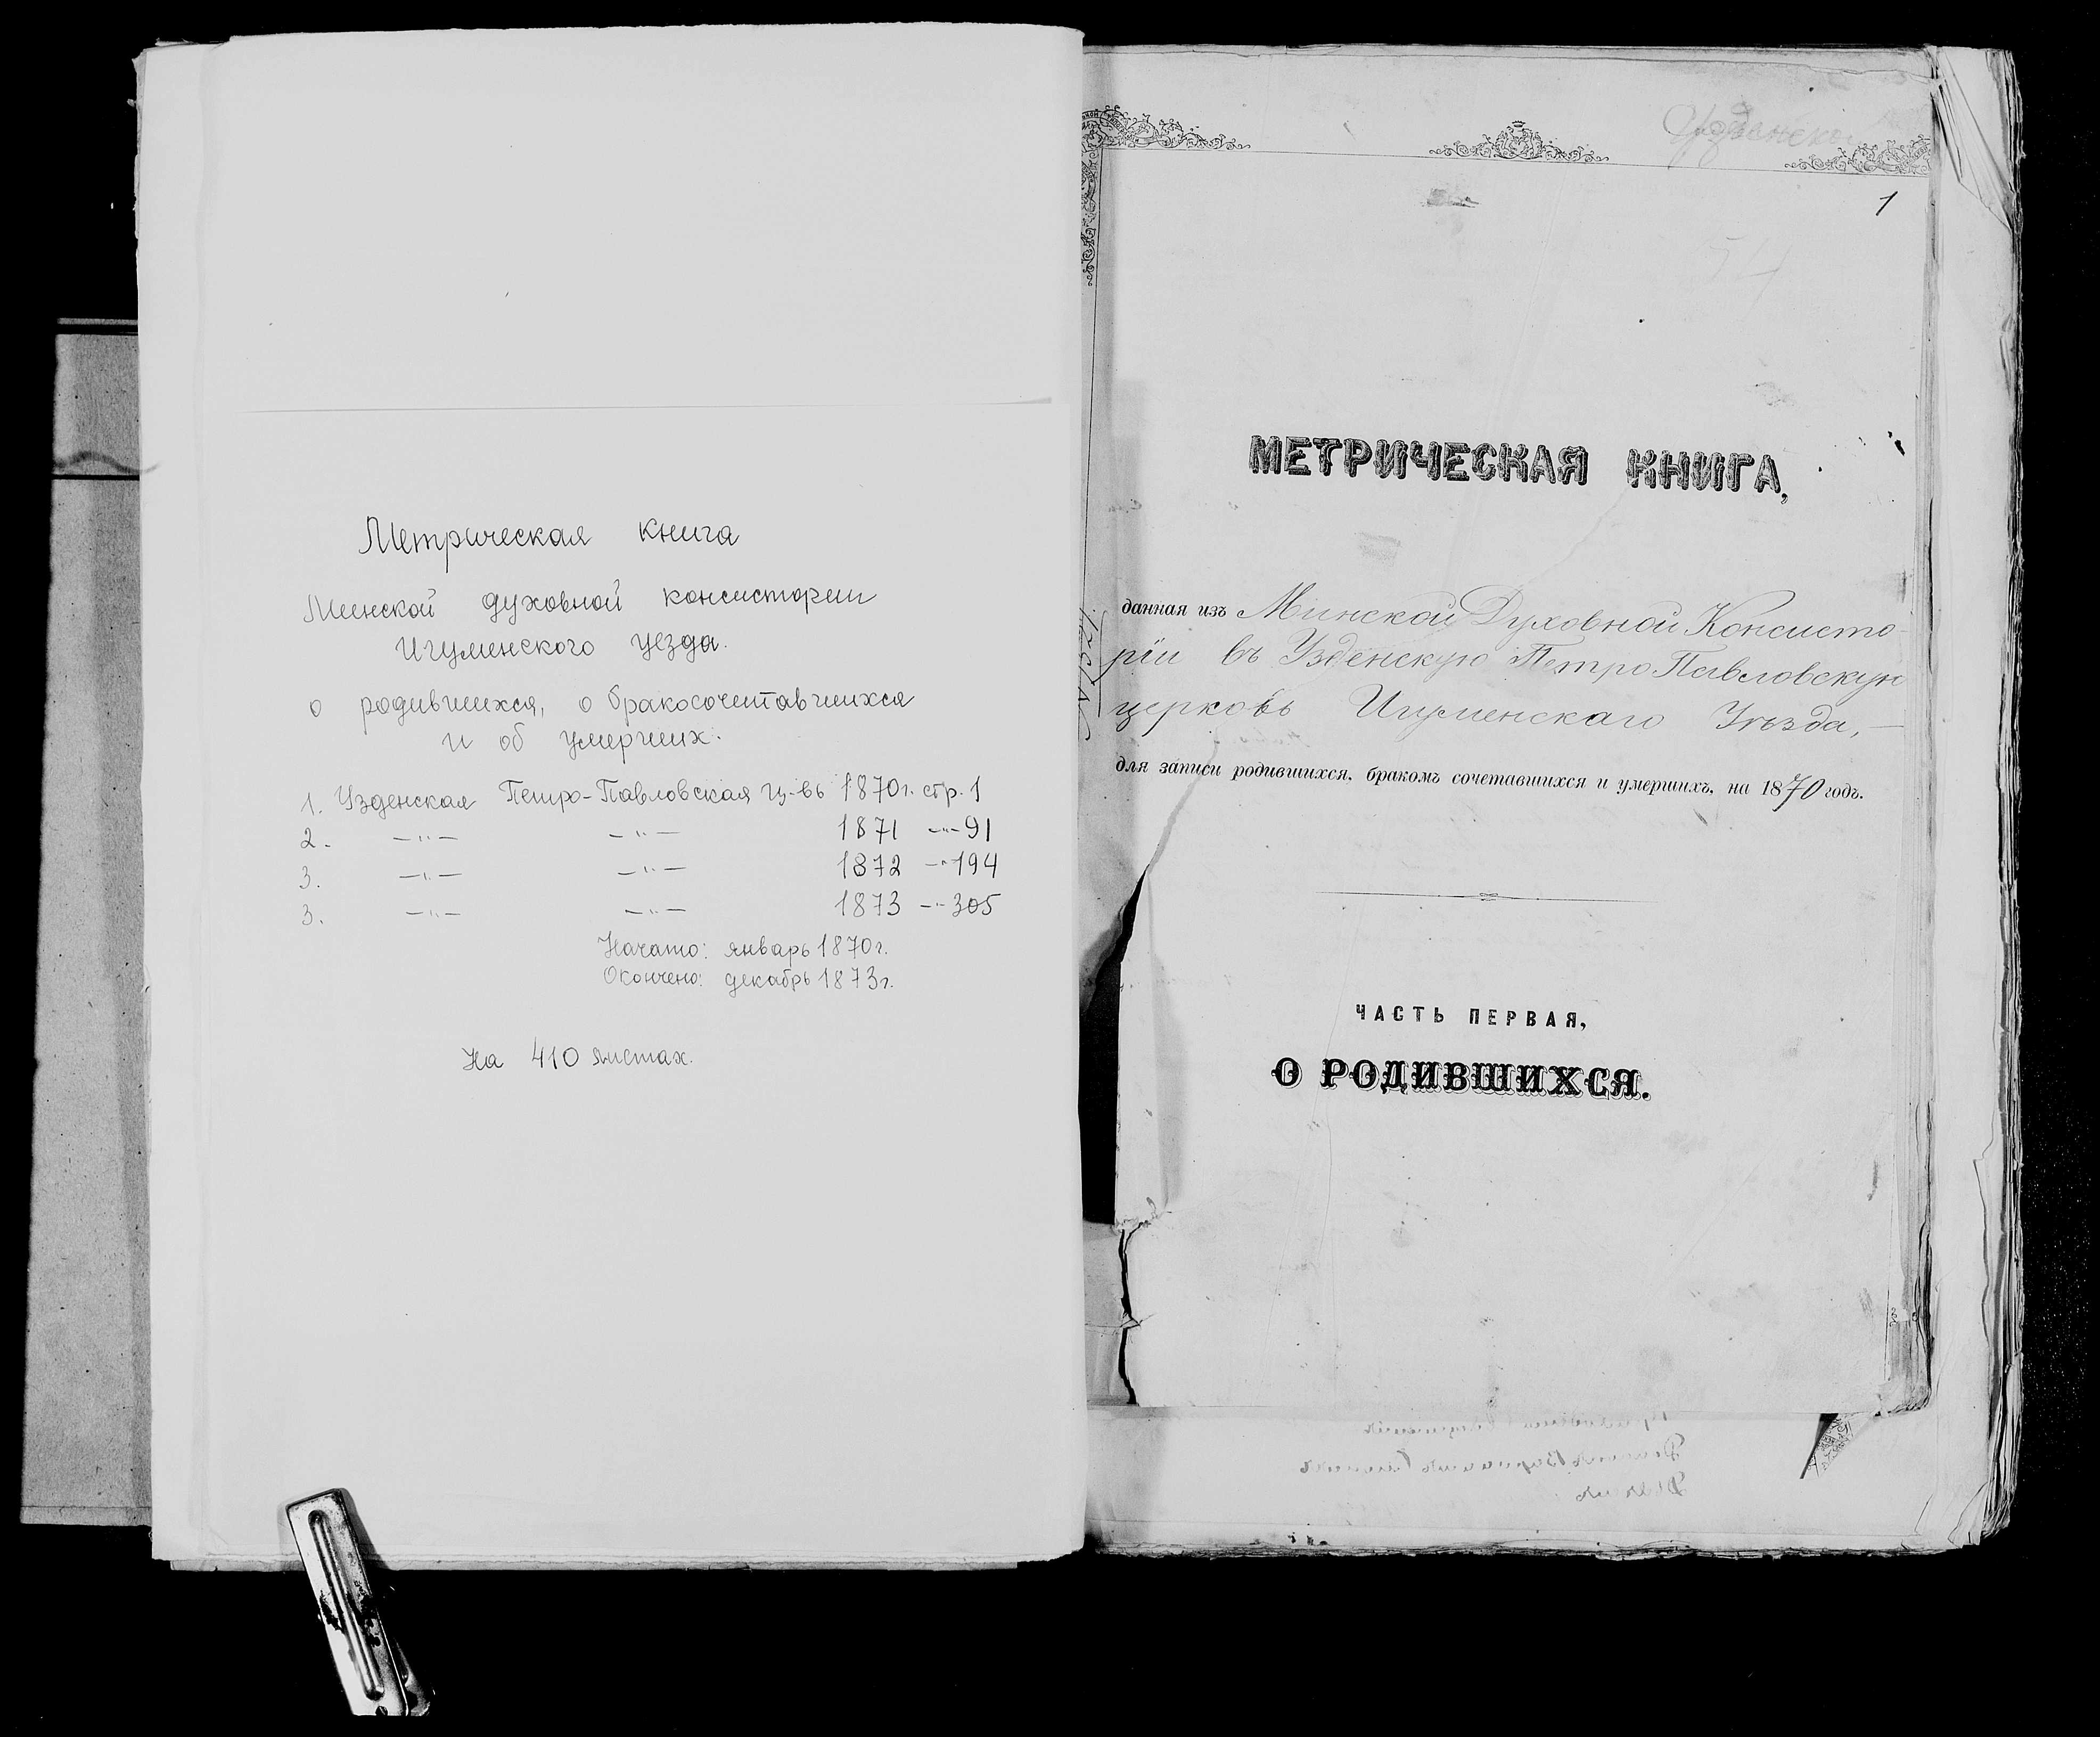 Метрическая книга
Минской духовной консистории
Игуменского уезда.
о родившихся, о бракосочетавшихся
и об умерших.
1. Узденская Петро-Павловская ц-вь 1870г. стр. 1
2. —"— —"— 1871 —"— 91
3. —"— —"— 1872 —"— 194
3. —"— —"— 1873 —"— 305
Начато: январь 1870г.
Окончено: декабрь 1873г.
На 410 листах.
Узденской
1
54
МЕТРИЧЕСКАЯ КНИГА,
данная изъ Минской Духовной Консисто-
ріи въ Узденскую Петро-Павловскую
церковь Игуменскаго Уѣзда,—
для записи родившихся, бракомъ сочетавшихся и умершихъ, на 1870 годъ.
ЧАСТЬ ПЕРВАЯ,
О РОДИВШИХСЯ.